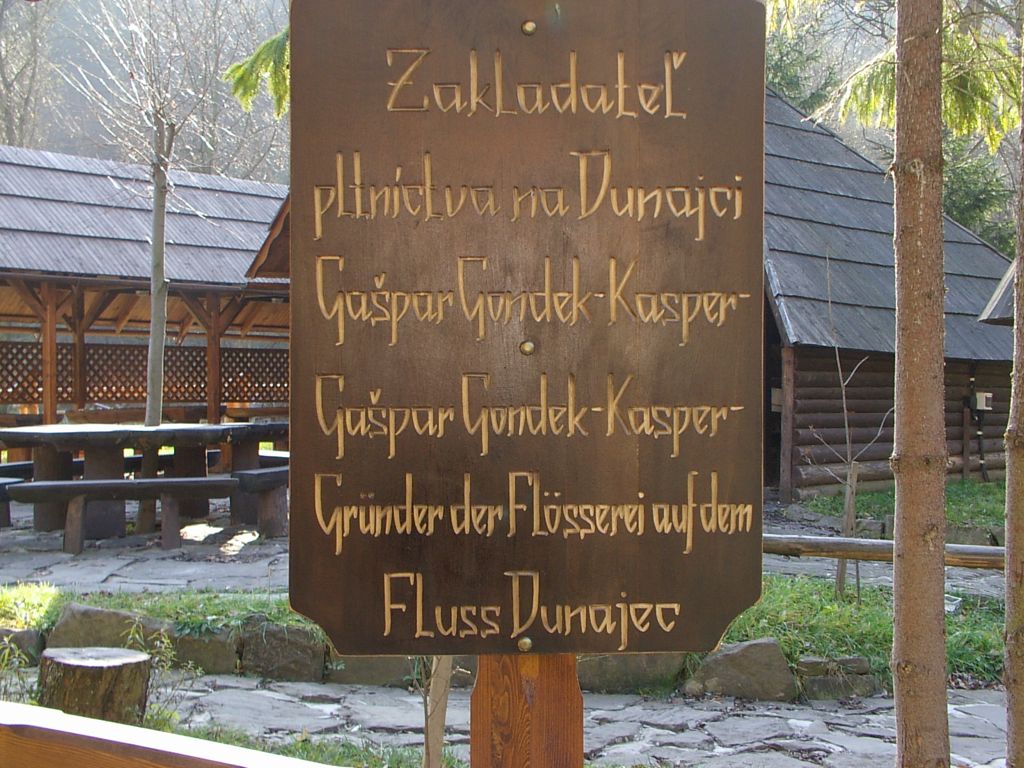 Zakladateľ
pltníctva na Dunajci
Gašpar Gondek-Kasper-
Gašpar Gondek-Kasper-
Gründer der Flösserei auf dem
Fluss Dunajec